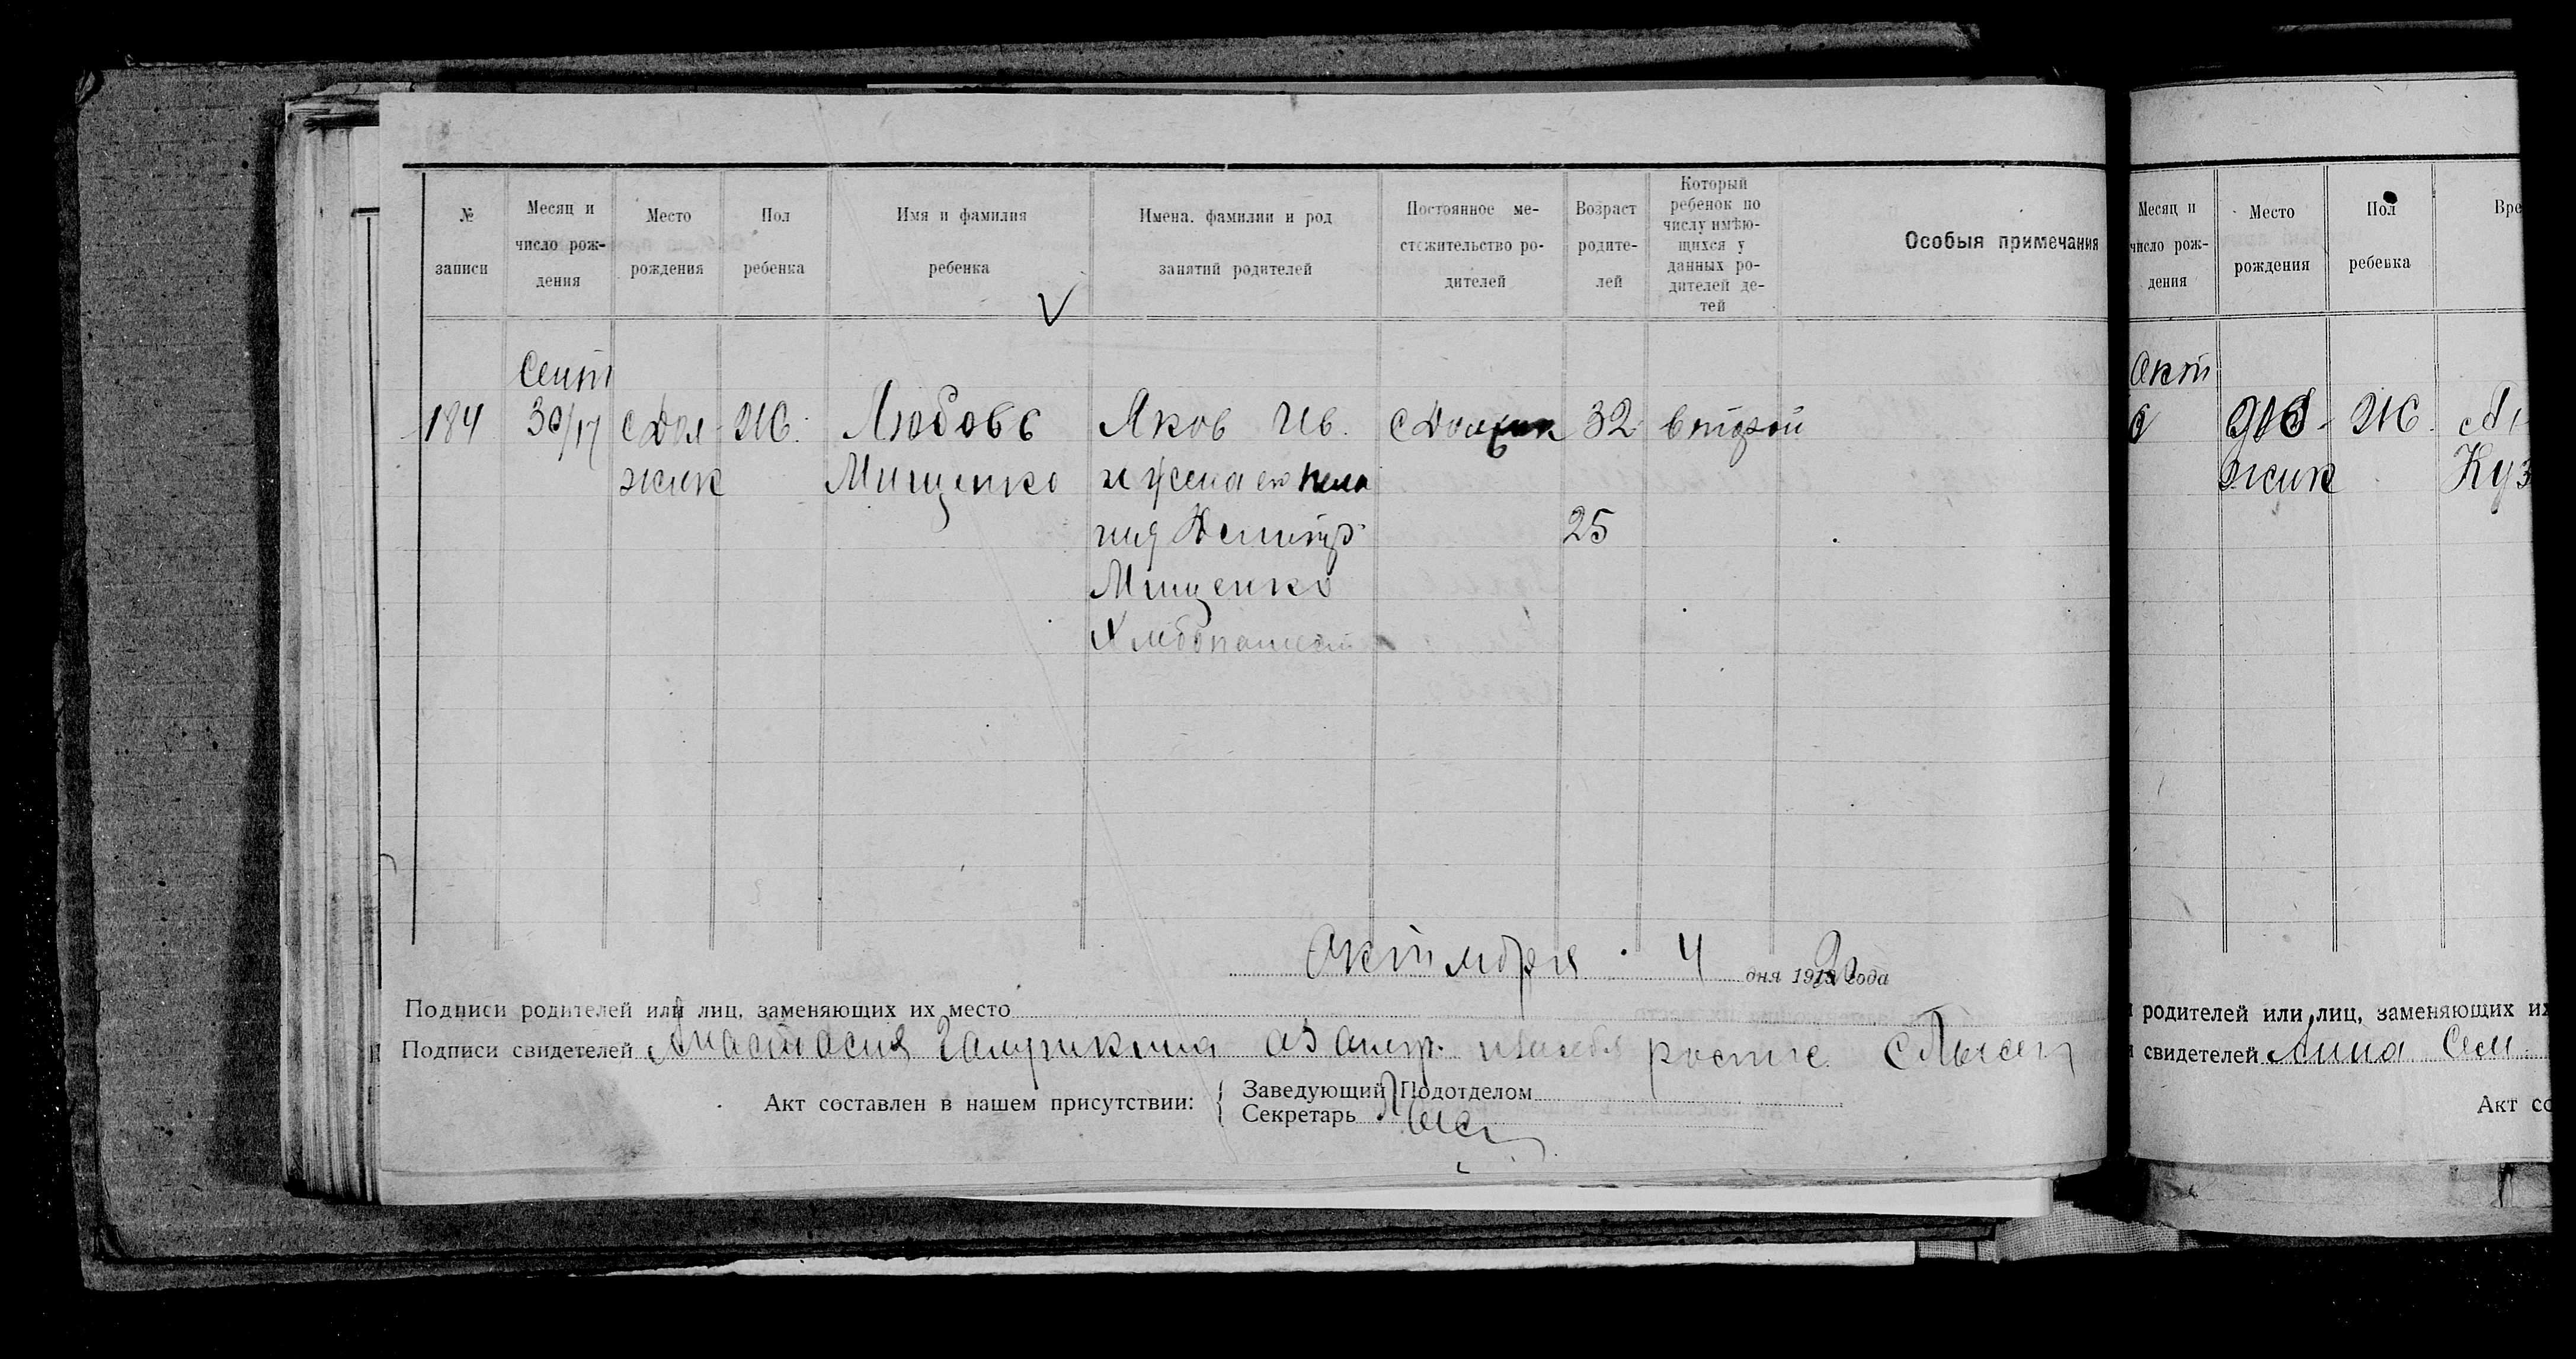 № записи
Месяц и число рож-
дения
Место рождения
Пол ребенка
Имя и фамилия ребенка
Имена. фамилии и род занятий родителей
Постоянное ме-
стожительство ро-
дителей
Возраст родите-
лей
Который
ребенок по
числу имѣю-
щихся у
данных ро-
дителей де-
тей
Особыя примечания
Сент
184 30/17 с Дол- Ж. Любовь Яков Ив. с Должик 32 второй
жик Мищенко и жена его Кела
ния Димитр 25
Мищенко
Хлебопашест
Октября 4 дня 1920 года
Подписи родителей или лиц, заменяющих их место
Подписи свидетелей Анастасия Галушкина
Акт составлен в нашем присутствии:
Заведующий Подотделом
Секретарь
Месяц и
число рож-
дения
Место
рождения
Пол
ребенка
Вре
Окт
Ж.
жик Куз
родителей или лиц, заменяющих их
свидетелей Анна Сем.
Акт со